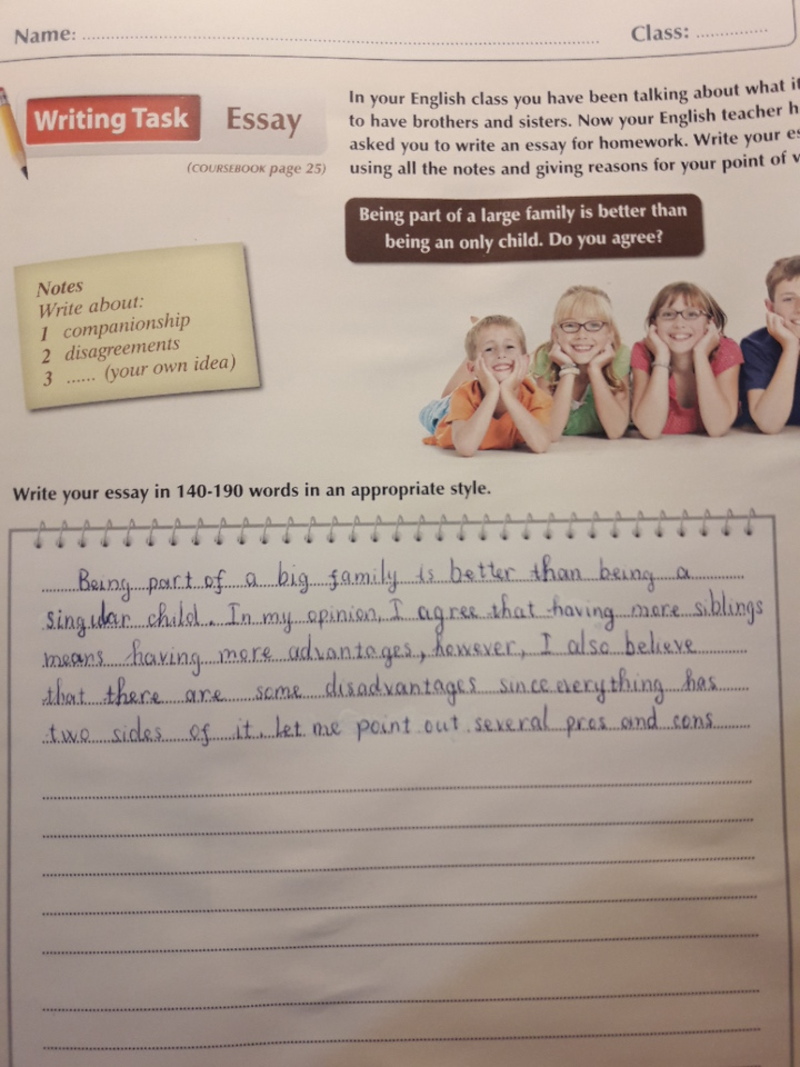 Name:
Class:
Writing Task
Essay
(COURSEBOOK page 25)
In your English class you have been talking about what it
to have brothers and sisters. Now your English teacher h
asked you to write an essay for homework. Write your es
using all the notes and giving reasons for your point of v
Being part of a large family is better than
being an only child. Do you agree?
Notes
Write about:
1 companionship
2 disagreements
3 ...... (your own idea)
Write your essay in 140-190 words in an appropriate style.
Being part of a big family is better than being a
singular child. In my opinion, I agree that having more siblings
means having more advantages, however, I also believe
that there are some disadvantages since everything has
two sides of it. Let me point out several pros and cons